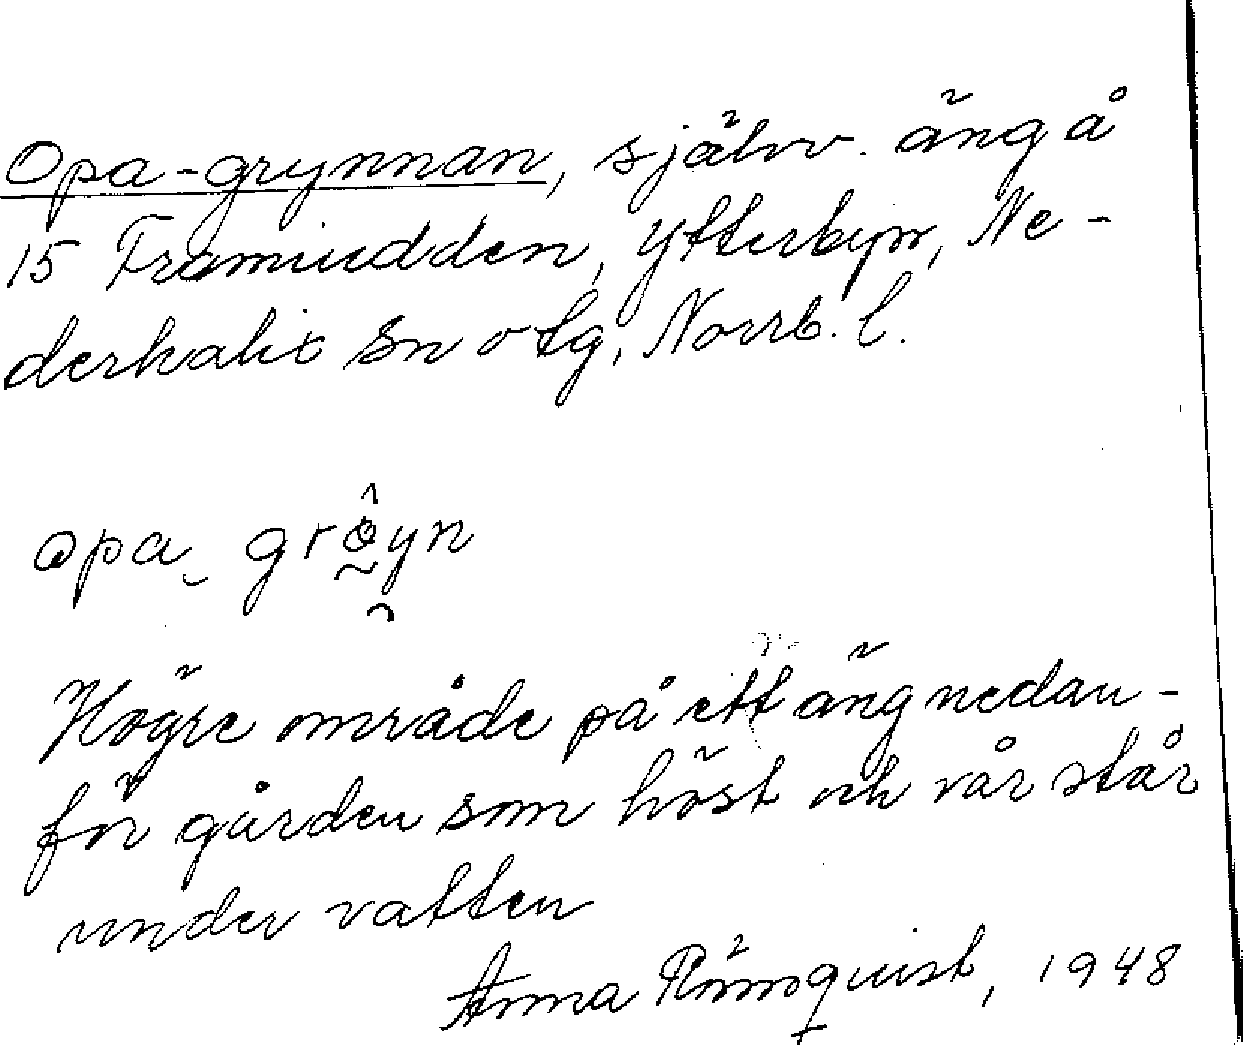 Opa-grynnan, självv. äng å
15 Framiudden, Ytterbyn, Ne-
derkalix sn o tg, Norrb. l.
opa grøyn
Högre område på ett äng nedan-
för gården som höst och vår står
under vatten
Anna Rönnquist, 1948